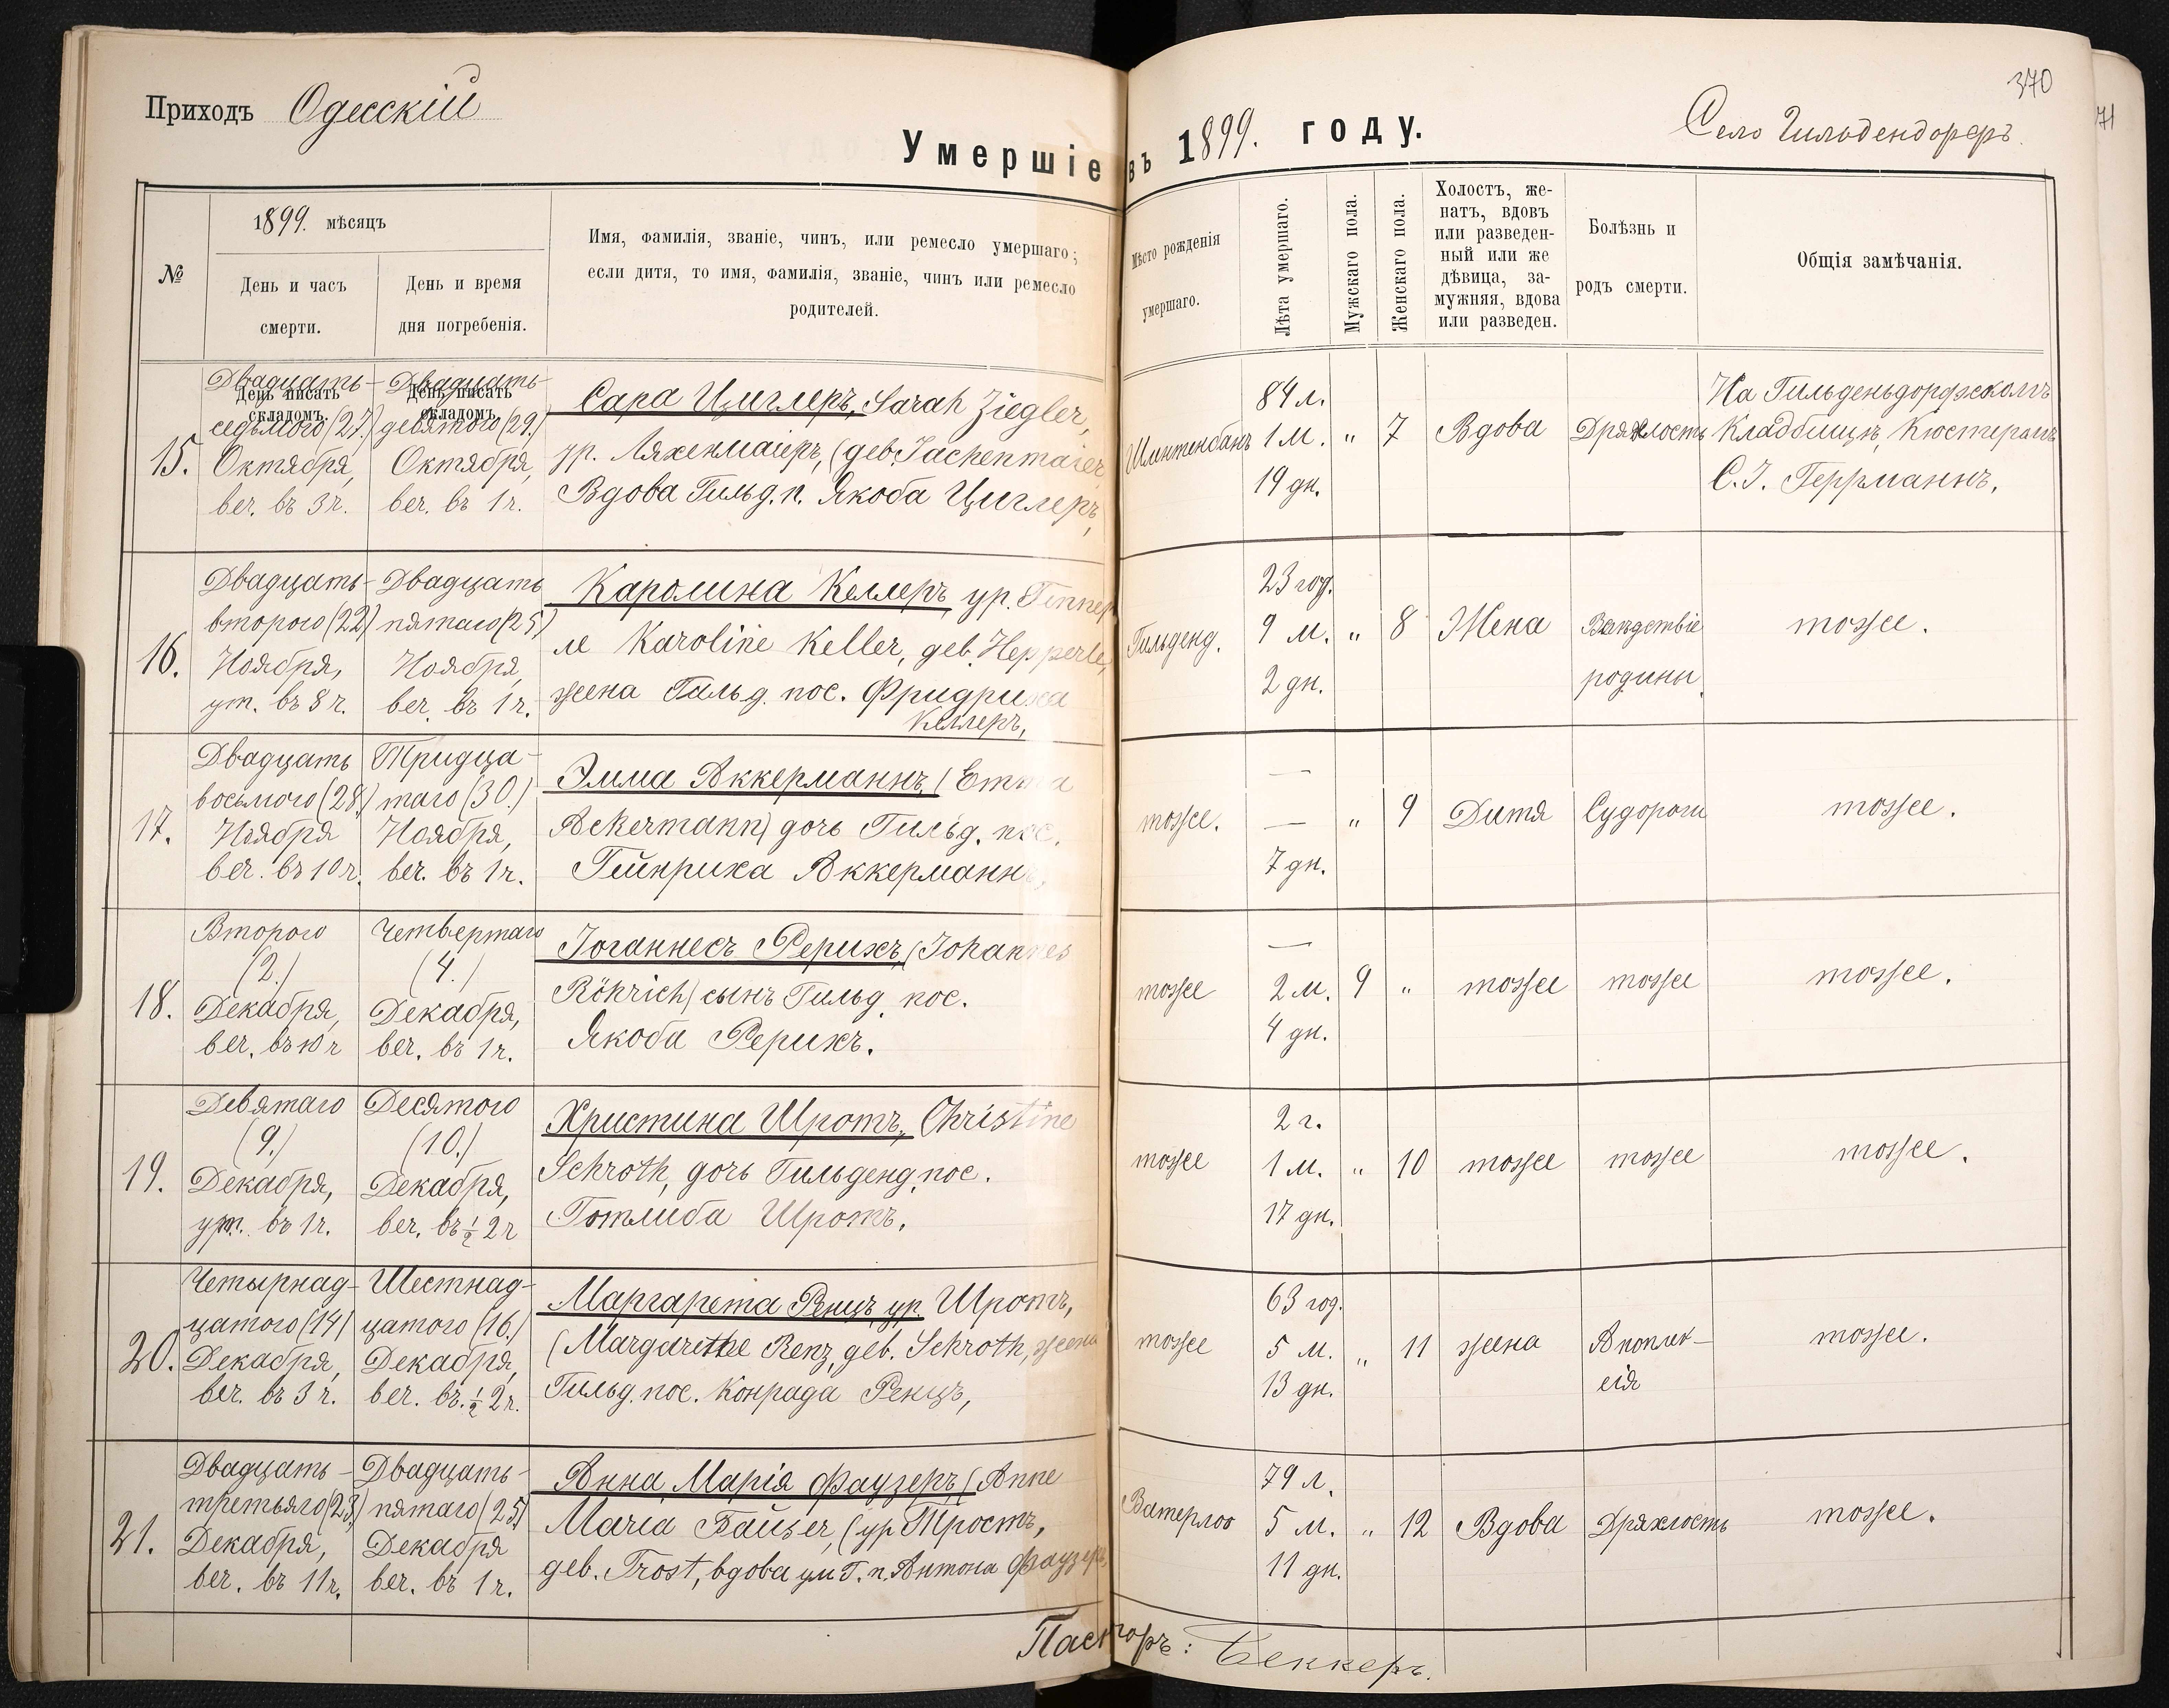 370
71
Приходъ Одесскій
Село Гильдендорфъ.
Умершіе въ 1899. году.
№
1899. мѣсяцъ
День и часъ
смерти.
День и время
дня погребенія.
Имя, фамилія, званіе, чинъ, или ремесло умершаго;
если дитя, то имя, фамилія, званіе, чинъ или ремесло
родителей.
Мѣсто рожденія
умершаго.
Лѣта умершаго.
Мужскаго пола.
Женскаго пола.
Холостъ, же-
натъ, вдовъ
или разведен-
ный или же
дѣвица, за-
мужняя, вдова
или разведен.
Болѣзнь и
родъ смерти.
Общія замѣчанія.
День писать
складомъ.
День писать
складомъ.
15.
Двадцать-
седьмого (27.)
Октября,
веч. въ 3 ч.
Двадцать-
девятого (29.)
Октября,
веч. въ 1 ч.
Сара Циглеръ, Sarah Ziegler,
ур. Ляхенмаіеръ, (geb. Jachenmaier
Вдова Гильд. п. Якоба Циглеръ,
84 л.
1 м.
19 дн.
"
7
Вдова
Дряхлость
На Гильденьдорфскомъ
Кладбищѣ, Кюстеромъ
С. І. Геррманнъ.
16.
Двадцать-
второго (22)
Ноября,
ут. въ 8 ч.
Двадцать
пятаго (25)
Ноября,
веч. въ 1 ч.
Каролина Келлеръ, ур. Геппер
ле Karoline Keller, geb. Hepperle,
жена Гильд. пос. Фридриха
Келлеръ,
Гильденд.
23 год.
9 м.
2 дн.
"
8
Жена
Вслѣдствіе
родины.
тоже.
17.
Двадцать
восьмого (28.)
Ноября
веч. въ 10 ч.
Тридца-
таго (30.)
Ноября,
веч. въ 1 ч.
Эмма Аккерманнъ, (Emma
Ackermann) дочь Гильд. пос.
Гейнриха Аккерманнъ,
тоже.
—
—
7 дн.
"
9
Дитя
Судороги
тоже.
18.
Второго
(2.)
Декабря,
веч. въ 10 ч
Четвертаго
(4.)
Декабря,
веч. въ 1 ч.
Іоганнесъ Рерихъ, (Johannes
Röhrich) сынъ Гильд. пос.
Якоба Рерихъ.
тоже
—
2 м.
4 дн.
9
"
тоже
тоже
тоже.
19.
Девятаго
(9.)
Декабря,
ут. въ 1 ч.
Десятого
(10.)
Декабря,
веч. въ ½ 2 ч
Христина Шротъ, Christine
Schroth, дочь Гильденд. пос.
Готлиба Шротъ.
тоже
2 г.
1 м.
17 дн.
"
10
тоже
тоже
тоже.
20.
Четырнад-
цатого (14)
Декабря,
веч. въ 3 ч.
Шестнад-
цатого (16.)
Декабря,
веч. въ. ½ 2 ч.
Маргарета Ренцъ, ур. Шротъ,
(Margarethe Renz, geb. Schroth, жена
Гильд. пос. Конрада Ренцъ,
тоже
63 год.
5 м.
13 дн.
"
11
жена
Апоплек-
сія
тоже.
21.
Двадцать-
третьяго (23.)
Декабря,
веч. въ 11 ч.
Двадцать-
пятаго (25)
Декабря
веч. въ 1 ч.
Анна Марія Фаузеръ, (Anne
Maria (ур. Тростъ,
geb. Trost, вдова ум. Г. п. Антона Фаузеръ,
Ватерлоо
79 л.
5 м.
11 дн.
"
12
Вдова
Дряхлость
тоже.
Пасторъ: Беккеръ.